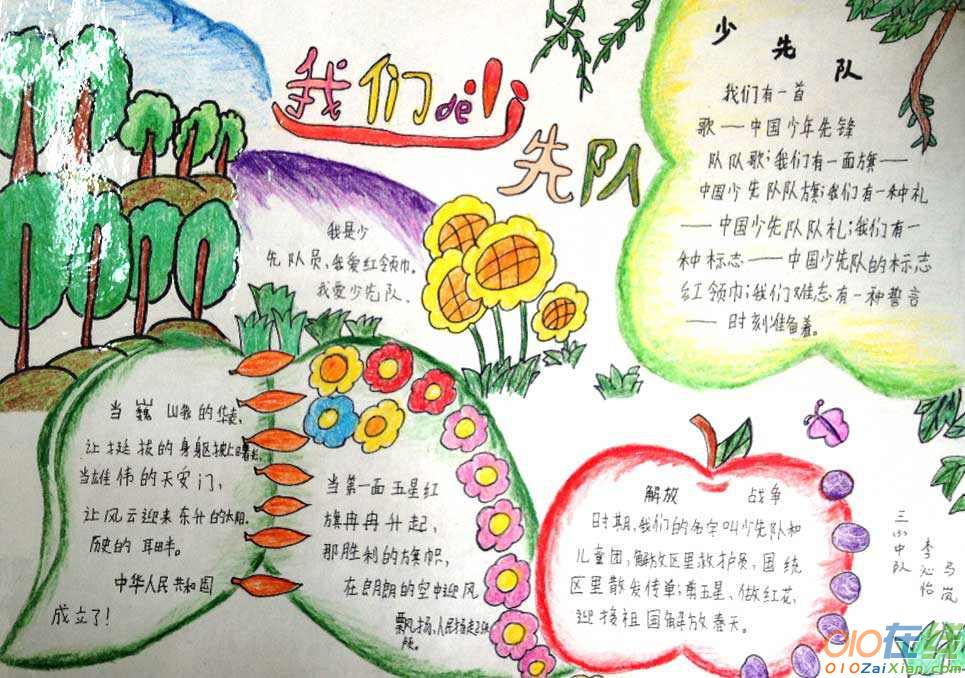 我们de小
先队
少先队
我们有一首
歌——中国少年先锋
队队歌；我们有一面旗——
中国少先队队旗；我们有一种礼
——中国少先队队礼；我们有一
种标志——中国少先队的标志
红领巾；我们难忘有一种誓言
——时刻准备着。
我是少
先队员，我爱红领巾。
我爱少先队。
当巍山我的华表，
让挺拔的身躯披上曙光，
当雄伟的天安门，
让风云迎来东升的太阳。
历史的
中华人民共和国
成立了！
当第一面五星红
旗冉冉升起，
那胜利的旗帜，
在朗朗的空中迎风
飘扬，人民扬起
解放 战争
时期，我们的名字叫少先队和
儿童团，解放区里救护员，国统
区里散发传单；剪五星、做红花，
迎接祖国解放春天。
三小中队
李沁怡
马岚
010在线
010ZaiXian.com